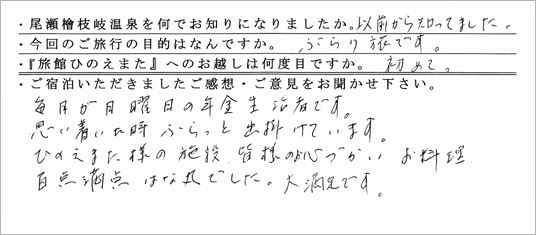 ・尾瀬檜枝岐温泉を何でお知りになりましたか。以前から知ってました。
・今回のご旅行の目的はなんですか。 ぶらり旅です。
・『旅館ひのえまた』へのお越しは何度目ですか。 初めて。
・ご宿泊いただきましたご感想・ご意見をお聞かせ下さい。
毎日が日曜日の年金生活者です。
思い着いた時ふらっと出掛けています。
ひのえまた様の施設、皆様の心づかい お料理
百点満点 はな丸でした。大満足です。